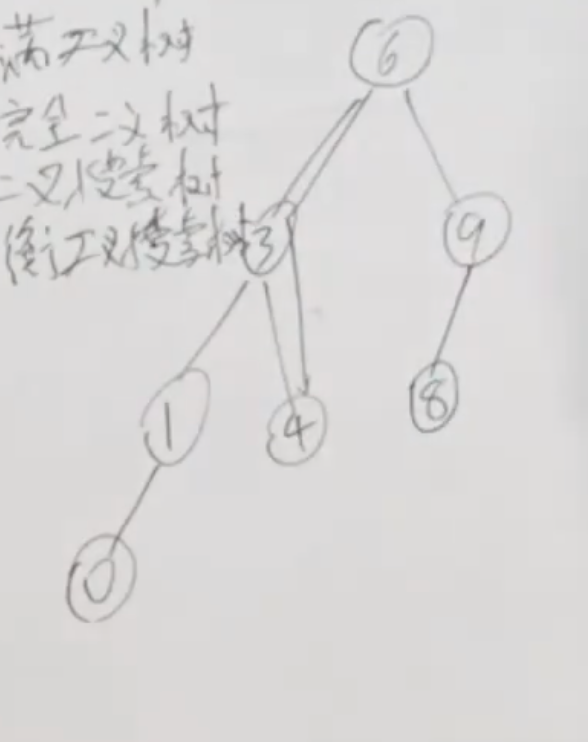 满二叉树
完全二叉树
二叉搜索树
衡二叉搜索树
6
3
9
1
4
8
0